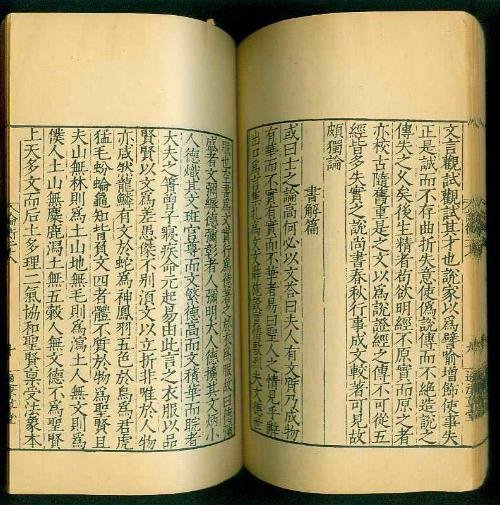 文言觀試觀試其才也說家以為譬喻增飾使事失
正是誠而不存曲折失意使偽說傳而不絕造說之
傳失之久矣後生精者苟欲明經不原實而原之者
亦校古隨舊重是之文以為說證經之傳不可從五
經皆多失實之說尚書春秋行事成文較著可見故
頗獨論
書解篇
或曰士之論高何必以文答曰夫人有文質乃成物
有華而不實有實而不華者易曰聖人之情見乎辭
出口為言集札為文文辭施設實情敷烈夫文德世
服也空書為文實行為德著之於衣為服故曰德彌
盛者文彌縟德彌彰者人彌明大人德擴其文炳小
人德熾其文斑官尊而文繁德高而文積華而睆者
大夫之簀曾子寢疾命元起易由此言之衣服以品
賢賢以文為差愚傑不別須文以立折非唯於人物
亦咸然龍鱗有文於蛇為神鳳羽五色於鳥為君虎
猛毛蚡蜦龜知背負文四者體不質於物為聖賢且
夫山無林則為土山地無毛則為瀉土人無文則為
僕人土山無麋鹿瀉土無五穀人無文德不為聖賢
上天多文而后土多理二氣協和聖賢稟受法象本